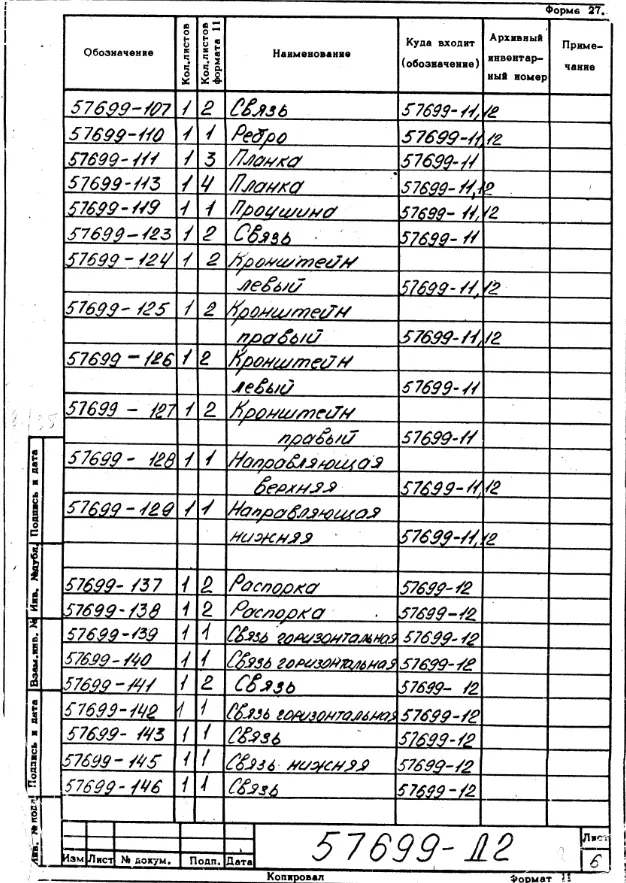 Форма 27.
Обозначение Кол.листов Кол.листов формата 11 Наименование Куда входит (обозначение) Архивный инвентарный номер Примечание
57699-107 1 2 Связь 57699-11,12
57699-110 1 1 Ребро 57699-11,12
57699-111 1 3 Планка 57699-11
57699-113 1 4 Планка 57699-11,12
57699-119 1 1 Проушина 57699-11,12
57699-123 1 2 Связь 57699-11
57699-124 1 2 Кронштейн
левый 57699-11,12
57699-125 1 2 Кронштейн
правый 57699-11,12
57699-126 1 2 Кронштейн
левый 57699-11
57699-127 1 2 Кронштейн
правый 57699-11
57699-128 1 1 Направляющая
верхняя 57699-11,12
57699-129 1 1 Направляющая
нижняя 57699-11,12
57699-137 1 2 Распорка 57699-12
57699-138 1 2 Распорка 57699-12
57699-139 1 1 Связь горизонтальная 57699-12
57699-140 1 1 Связь горизонтальная 57699-12
57699-141 1 2 Связь 57699-12
57699-142 1 1 Связь горизонтальная 57699-12
57699-143 1 1 Связь 57699-12
57699-145 1 1 Связь нижняя 57699-12
57699-146 1 1 Связь 57699-12
Подпись и дата
Инв. №дубл.
Взам.инв. №
Подпись и дата
Инв. № подл.
Изм Лист № докум. Подп. Дата
57699-Д2
Лист
6
Копировал Формат 11